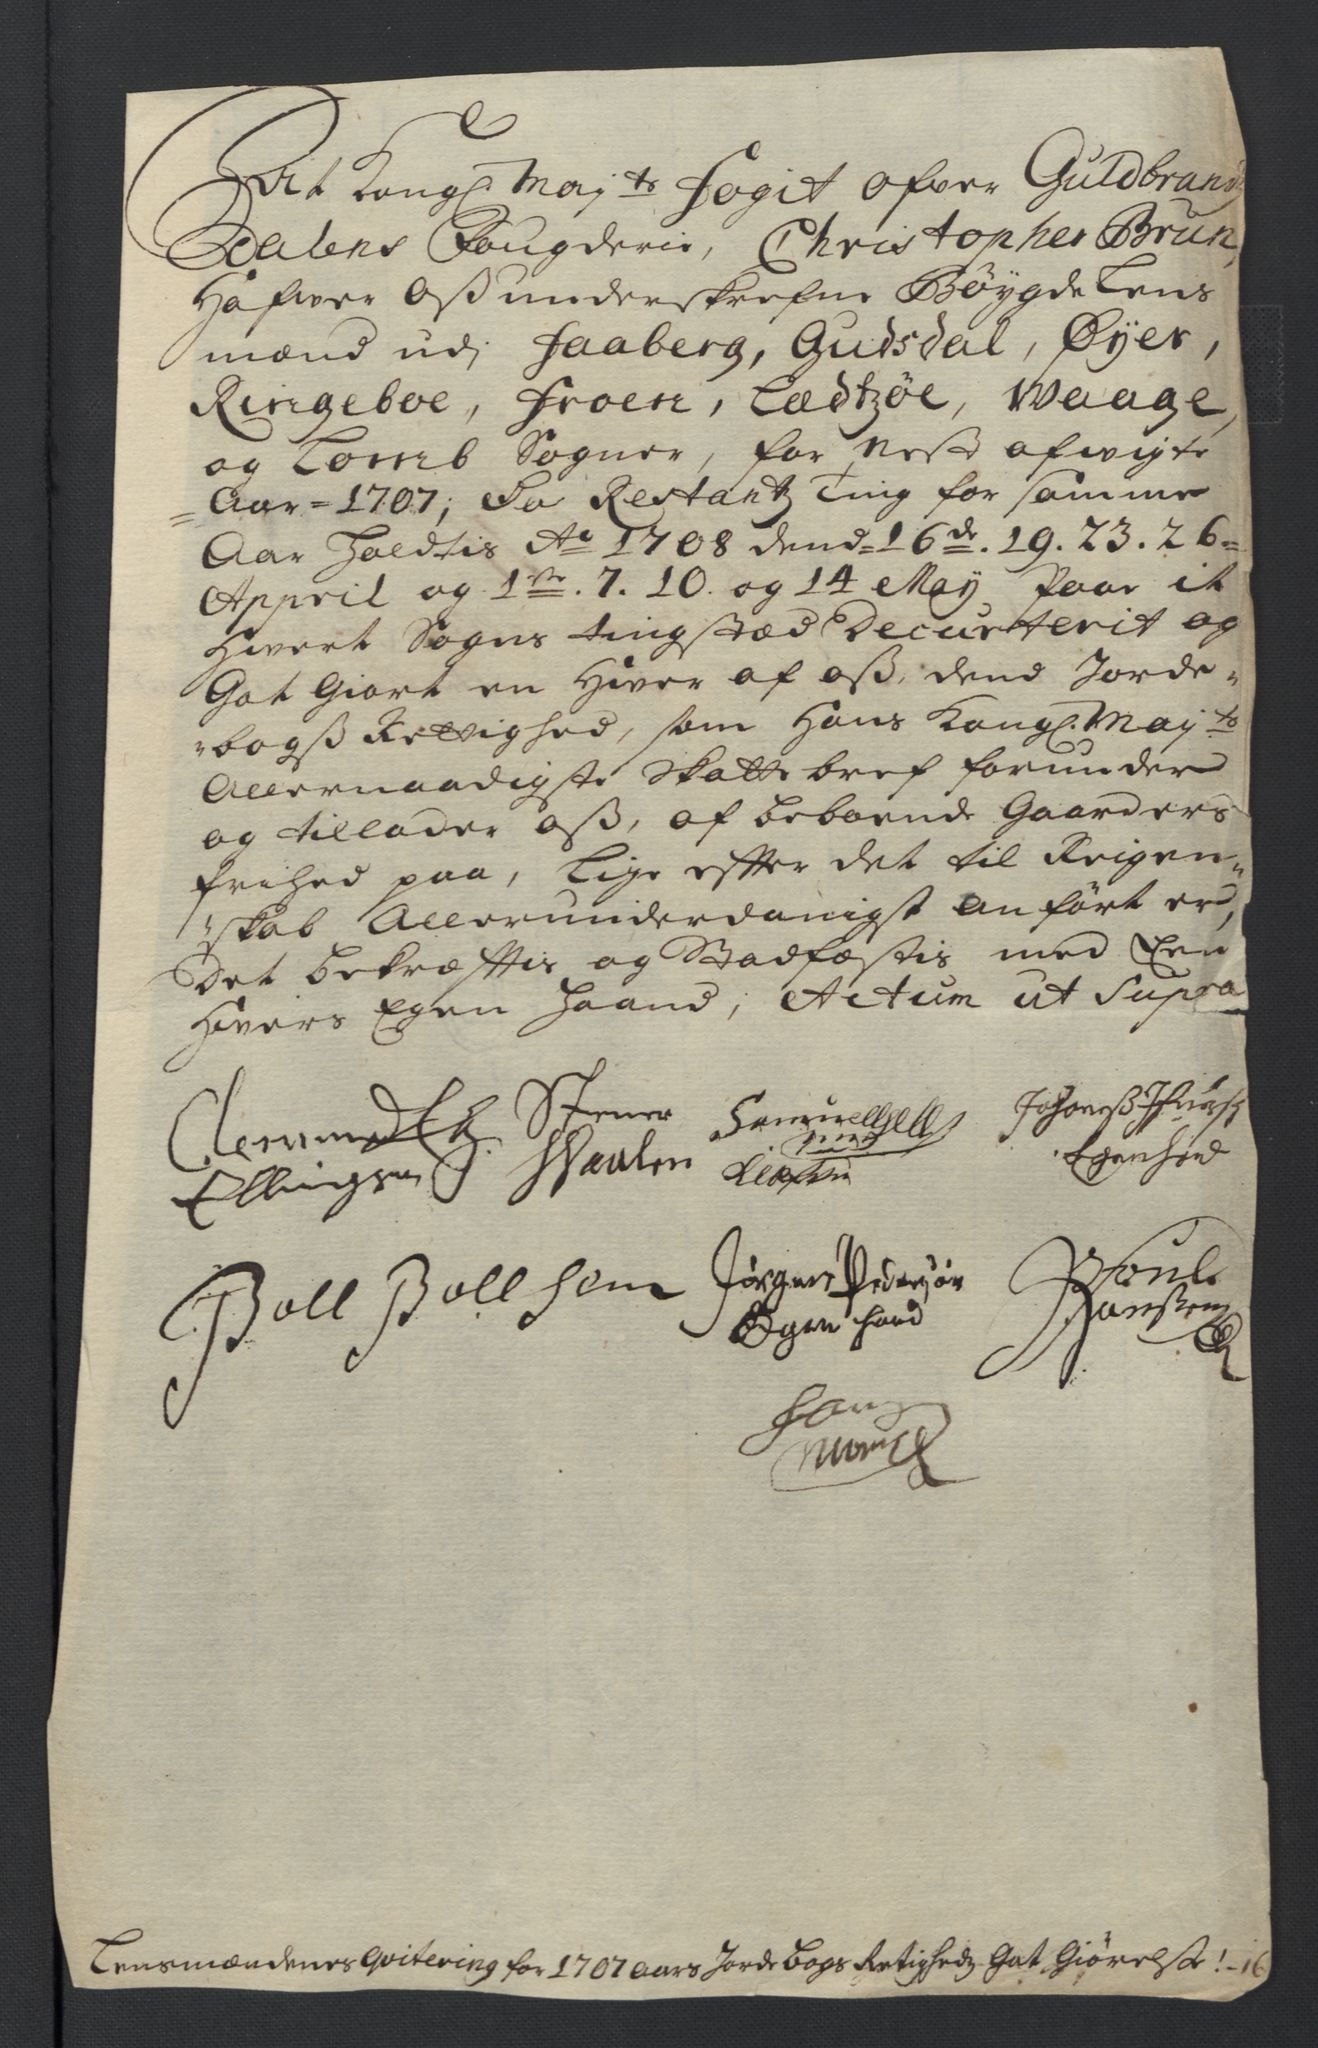 At Kongl. Mayts fogit ofver Guldbrands
Dalens Fougderie, Christopher Brun,
Hafver oß underskrefne Böygde Lens
mænd udj faaberg, Gudsdal, Øyer,
Ringeboe, froen, Lædtzöe, Waage,
og Lomb Sogner, for nest afvigte
Aar = 1707; Da Restantz Ting for samme
Aar holdtis Ao 1708 dend = 16de. 19. 23. 26 =
Appril og 1ste. 7. 10. og 14 May paa it
Hvert Sogns tingstæd Decurterit og
Got Giort en Hver af oß, dend Jorde =
= bogs Rettighed, som Hans Kongl. Mayts
Allernaadigste Skatte bref forunder
og tillader oß, af beboende Gaarders
frihed paa, Lige effter det til Reigen =
= skab Allerunderdanigst anført er,
Det bekræfftis og Stadfæstis med Een
Hvers Egen Haand, Actum ut Supra
Clemmed Stener Johanneß
Ellingsen Egenhend
Boll Bollsen Jörgen Pedersön Poul
Egen haand Hanssen
Lensmændenes Qvitering for 1707 aars Jorde Bogs Retighedz Got Giørelse! - 16